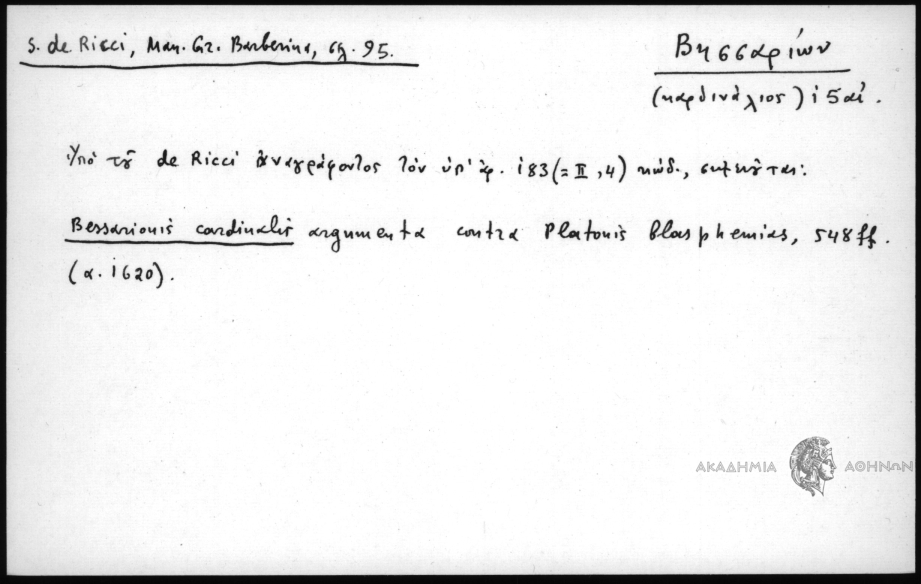 S. de Ricci, Man. Gr. Barberina, σλ. 95.
Βησσαρίων
(καρδινάλιος) ι5 αἰ.
Ὑπὸ τοῦ de Ricci ἀναγράφοντος τὸν ὑπ' ἀρ. 183 (= II, 4) κώδ., σημειοῦται:
Bessarionis cardinalis argumenta contra Platonis blasphemias, 548 ff.
(α. 1620).
ΑΚΑΔΗΜΙΑ ΑΘΗΝΩΝ